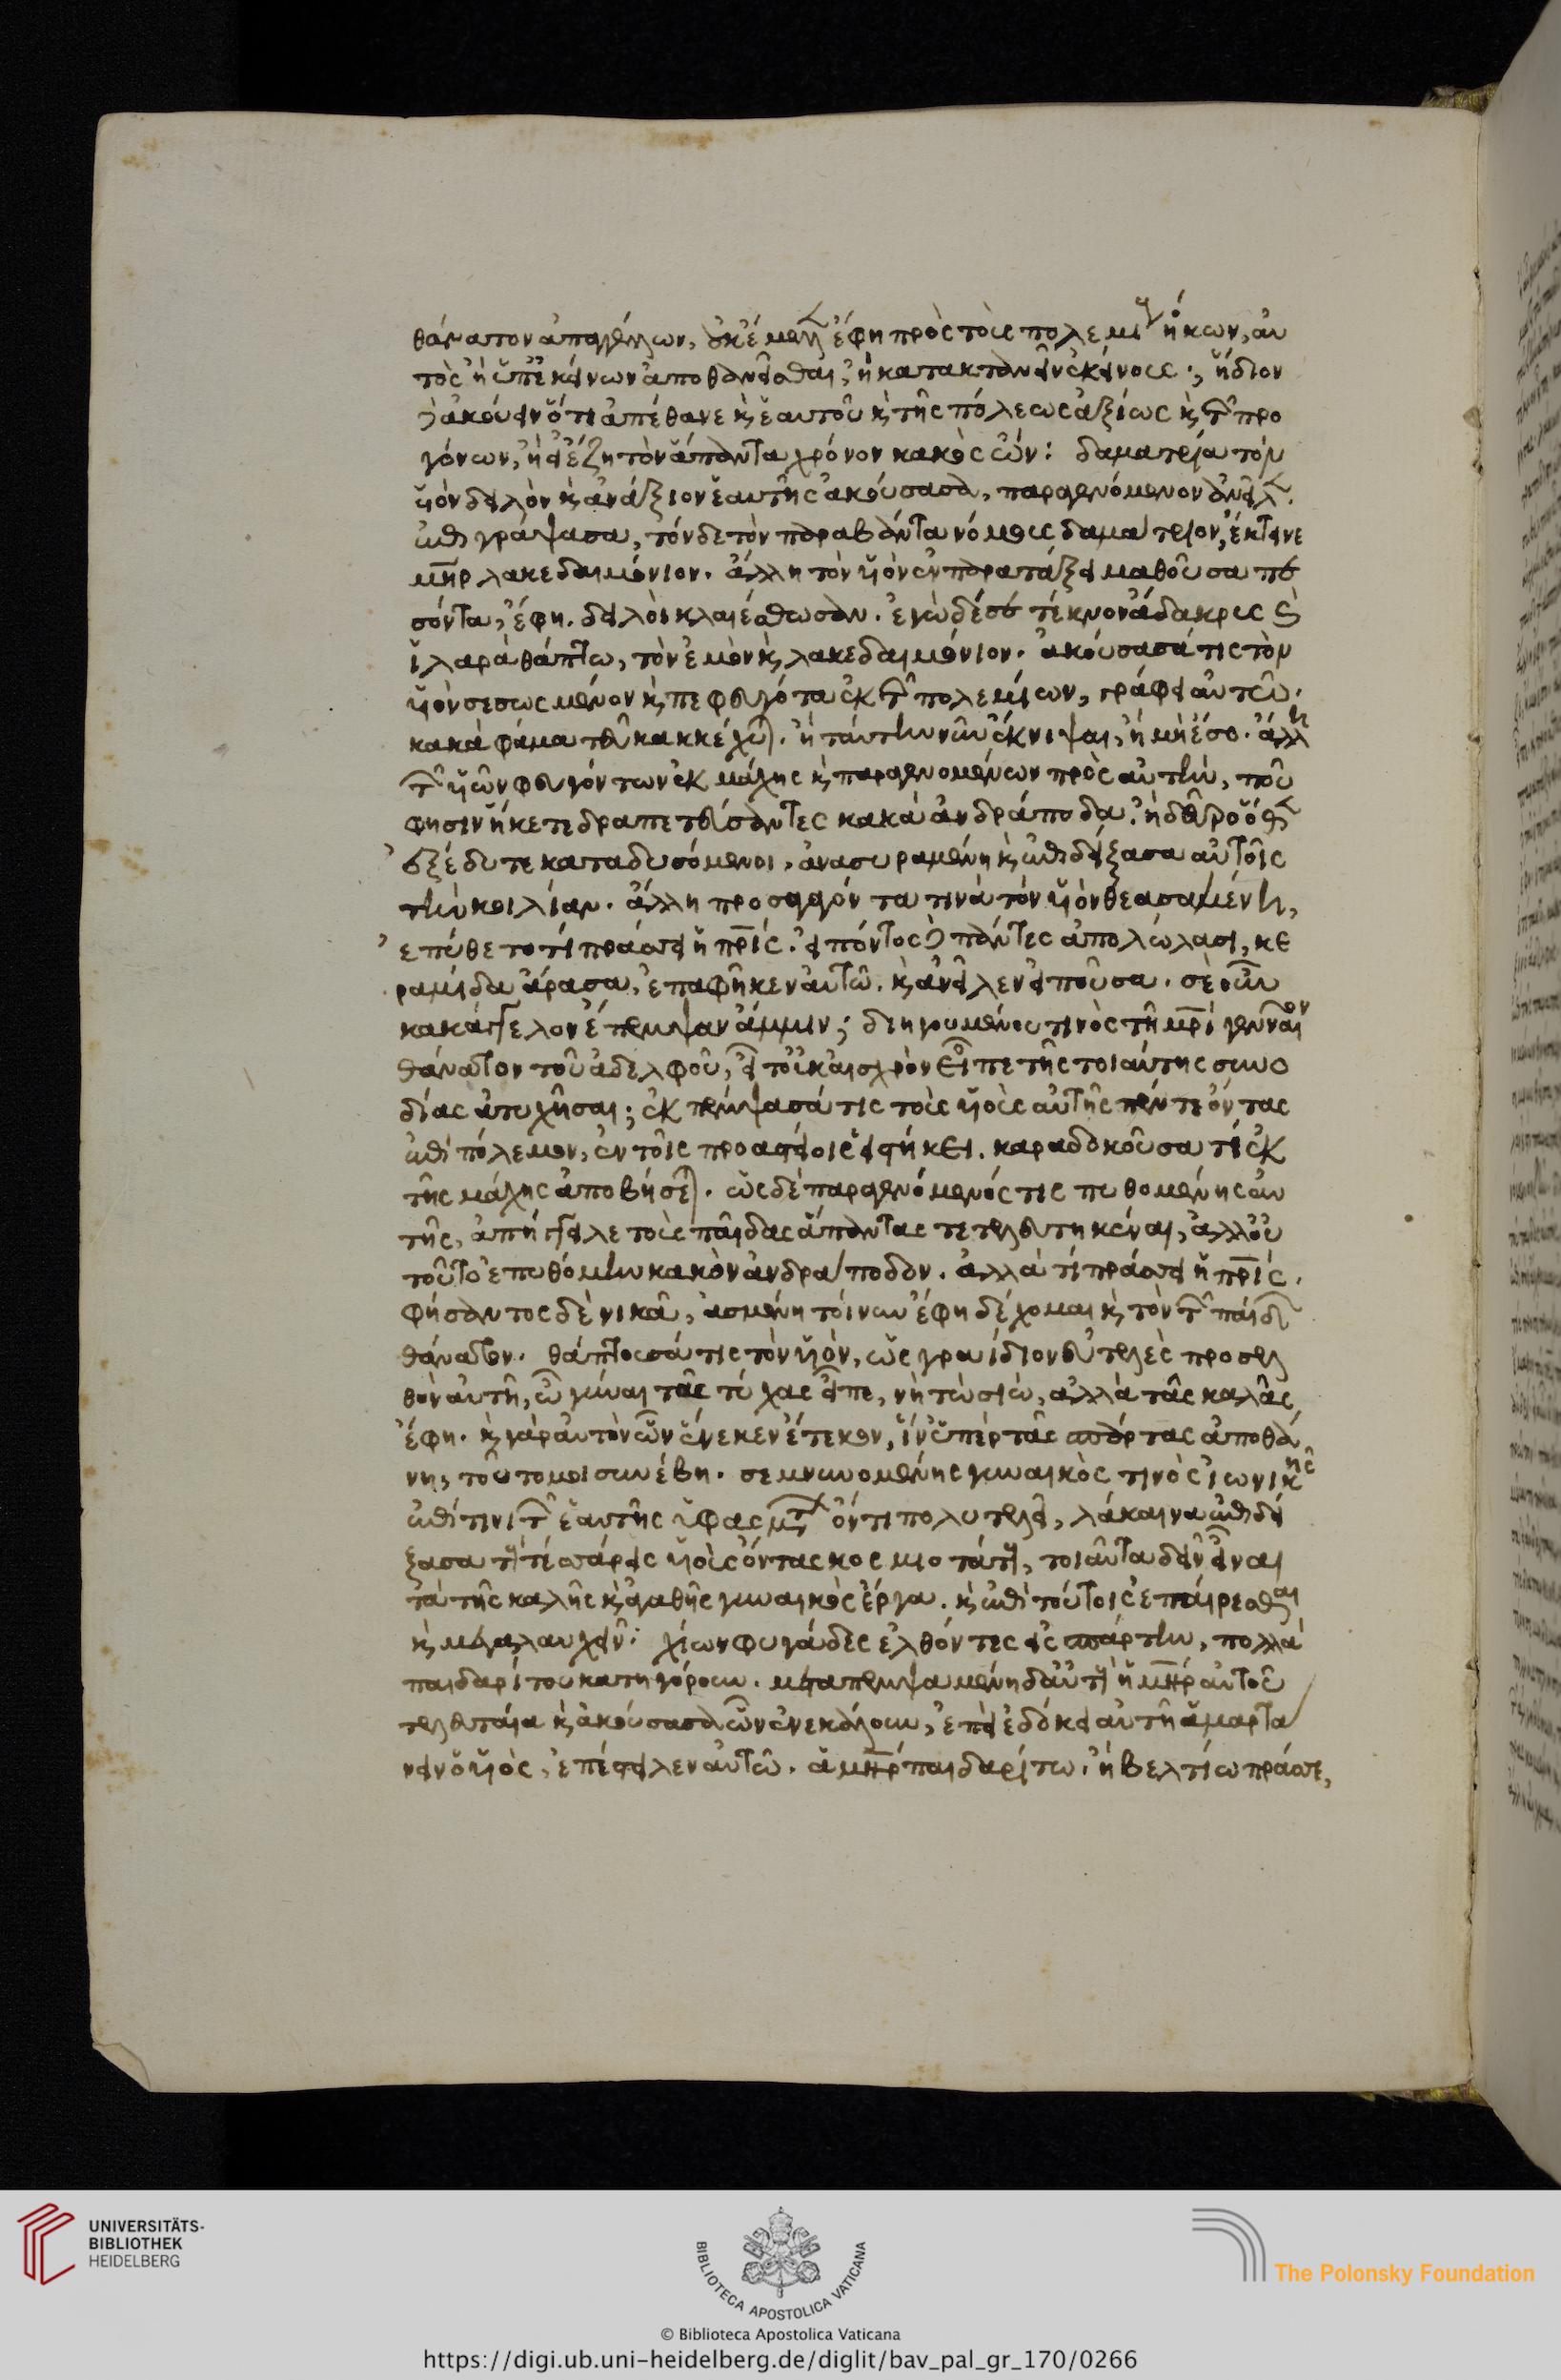 θάνατον ἀπαγγέλλων, οὐκ ἔμελλεν ἔφη πρὸς τοὺς πολεμίους ἥκων, αὐ
τὸς ἢ ὑπ' ἐκείνων ἀποθανεῖσθαι, ἢ κατακτανεῖν ἐκείνους· ἥδιον
δ' ἀκούειν ὅτι ἀπέθανε καὶ ἑαυτοῦ καὶ τῆς πόλεως ἀξίως καὶ τῶν προ
γόνων, ἢ εἰ ἔζη τὸν ἅπαντα χρόνον κακὸς ὤν: δαματρία τὸν
υἱὸν δειλὸν καὶ ἀνάξιον ἑαυτῆς ἀκούσασα, παραγενόμενον ἀνεῖλεν.
ἐπιγράψασα, τόνδε τὸν παραβάντα νόμους δαμάτριον, ἔκτανε
μήτηρ λακεδαιμόνιον. ἄλλη τὸν υἱὸν ἐν παρατάξει μαθοῦσα πε
σόντα, ἔφη. δειλοὶ κλαιέσθωσαν. ἐγὼ δέ σε τέκνον ἄδακρυς
ἱλαρὰ θάπτω, τὸν ἐμὸν καὶ λακεδαιμόνιον. ἀκούσασά τις τὸν
υἱὸν σεσωσμένον καὶ πεφευγότα ἐκ τῶν πολεμίων, γράφει αὐτῶ.
κακὰ φάμα τεῦ κακκέχυται. ἢ ταύτην νῦν ἔκνιψαι, ἢ μὴ ἔσο. ἄλλη
τῶν υἱῶν φυγόντων ἐκ μάχης καὶ παραγενομένων πρὸς αὐτὴν, ποῦ
φησιν ἥκετε δραπετεύσαντες κακὰ ἀνδράποδα; ἢ δεῦρο ὅθεν
ἐξέδυτε καταδυσόμενοι, ἀνασυραμένη καὶ ἐπιδείξασα αὐτοῖς
τὴν κοιλίαν. ἄλλη προσιόντα τινὰ τὸν υἱὸν θεασαμένη,
ἐπύθετο τί πράσσει ἡ πατρίς. εἰπόντος δὲ πάντες ἀπολώλασι, κε
ραμίδα ἄρασα, ἐπαφῆκεν αὐτῶ. καὶ ἀνεῖλεν εἰποῦσα. σὲ οὖν
κακάγγελον ἔπεμψαν ἄμμιν; διηγουμένου τινὸς τῆ μητρὶ γενναῖον
θάνατον τοῦ ἀδελφοῦ, εἶτ' οὐκ αἰσχρὸν εἶπε τῆς τοιαύτης συνο
δίας ἀτυχῆσαι; ἐκπέμψασά τις τοὺς υἱοὺς αὐτῆς πέντε ὄντας
ἐπὶ πόλεμον, ἐν τοῖς προαστείοις εἱστήκει. καραδοκοῦσα τί ἐκ
τῆς μάχης ἀποβήσεται. ὡς δὲ παραγενόμενός τις πυθομένης αὐ
τῆς, ἀπήγγειλε τοὺς παῖδας ἅπαντας τετελευτηκέναι, ἀλλ' οὐ
τοῦτο ἐπυθόμην κακὸν ἀνδράποδον. ἀλλὰ τί πράσσει ἡ πατρίς.
φήσαντος δὲ νικᾶ, ἀσμένη τοίνυν ἔφη δέχομαι καὶ τὸν τῶν παίδων
θάνατον. θάπτουσά τις τὸν υἱὸν, ὡς γραίδιον εὐτελὲς προσελ
θὸν αὐτῆ, ὦ γύναι τᾶς τύχας εἶπε, νὴ τὼ σιὼ, ἀλλὰ τᾶς καλᾶς
ἔφη. καὶ γὰρ αὐτὸν ὧν ἕνεκεν ἔτεκον, ἵν' ὑπὲρ τᾶς σπάρτας ἀποθά
νη, τοῦτό μοι συνέβη. σεμνυνομένης γυναικὸς τινὸς ἰωνικῆς
ἐπί τινι τῶν ἑαυτῆς ὑφασμάτων ὄντι πολυτελεῖ, λάκαινα ἐπιδεί
ξασα τοὺς τέσσαρας υἱοὺς ὄντας κοσμιωτάτους, τοιαῦτα δεῖν εἶναι
τὰ τῆς καλῆς καὶ ἀγαθῆς γυναικὸς ἔργα. καὶ ἐπὶ τούτοις ἐπαίρεσθαι
καὶ μεγαλαυχεῖν: χίων φυγάδες ἐλθόντες εἰς σπάρτην, πολλὰ
παιδαρίτου κατηγόρουν. μεταπεμψαμένη δ' αὐτοὺς ἡ μήτηρ αὐτοῦ
τελευταία καὶ ἀκούσασα ὧν ἐνεκάλουν, ἐπεὶ ἐδόκει αὐτῆ ἁμαρτά
νειν ὁ υἱὸς, ἐπέστειλεν αὐτῶ. ἁ μήτηρ παιδαρίτω. ἢ βελτίω πράσσε,
UNIVERSITÄTS-
BIBLIOTHEK
HEIDELBERG
BIBLIOTECA APOSTOLICA VATICANA
The Polonsky Foundation
© Biblioteca Apostolica Vaticana
https://digi.ub.uni-heidelberg.de/diglit/bav_pal_gr_170/0266